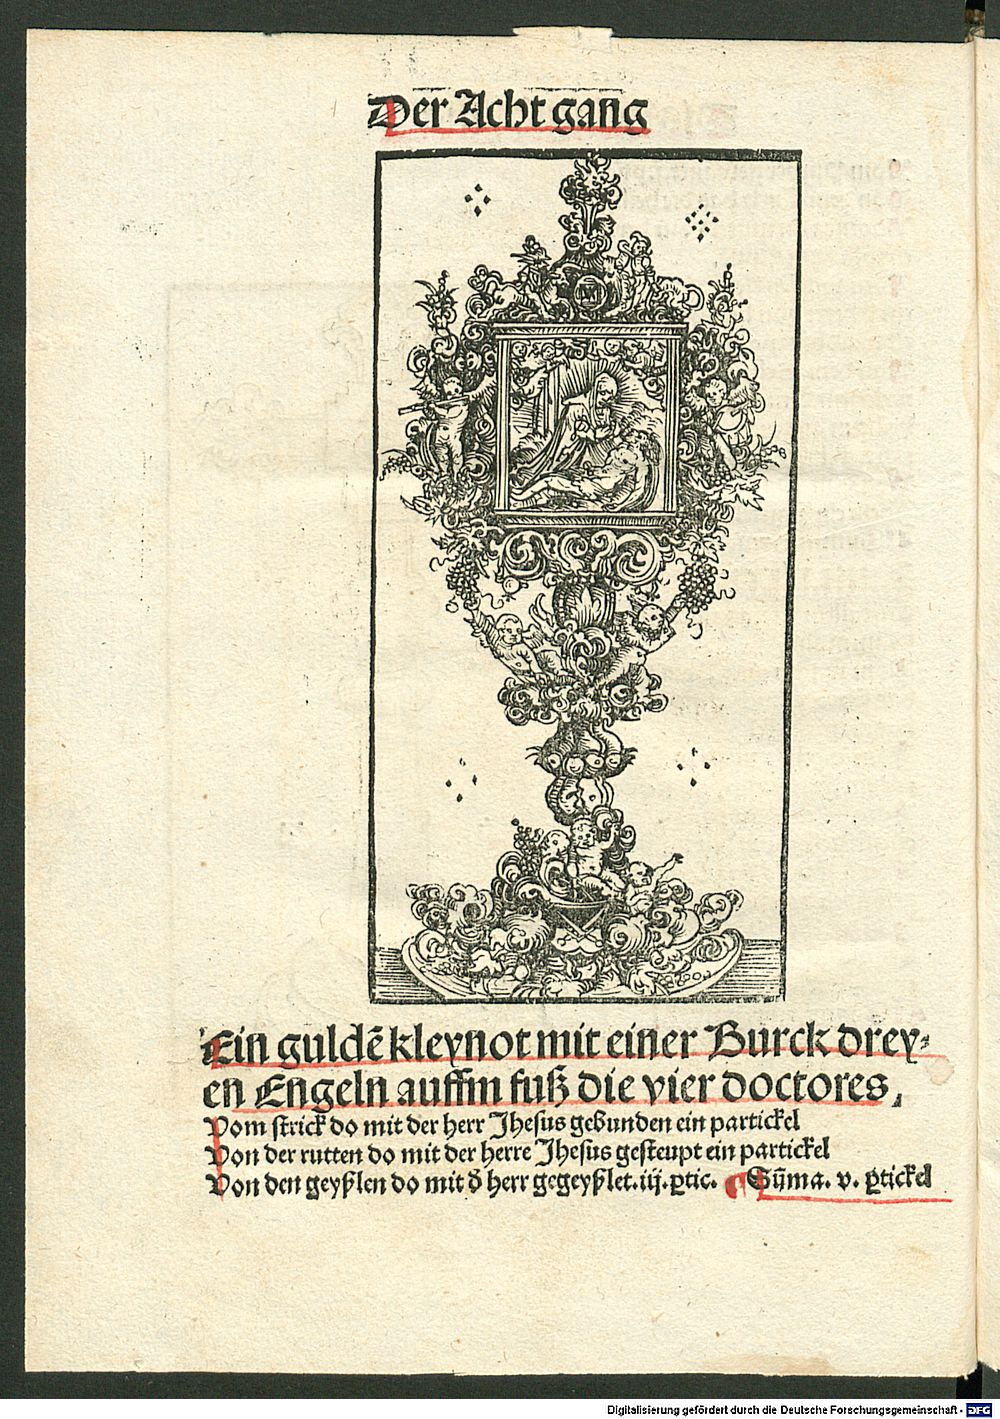 Der Acht gang
Ein guldē kleynot mit einer Burck drey⸗
en Engeln auffm fuß die vier doctores,
Vom strick do mit der herr Jhesus gebunden ein partickel
Von der rutten do mit der herre Jhesus gesteupt ein partickel
Von den geyßlen do mit d̄ herr gegeyßlet. iij. ꝑtic. Sūma. v. ꝑtickel
Digitalisierung gefördert durch die Deutsche Forschungsgemeinschaft - DFG